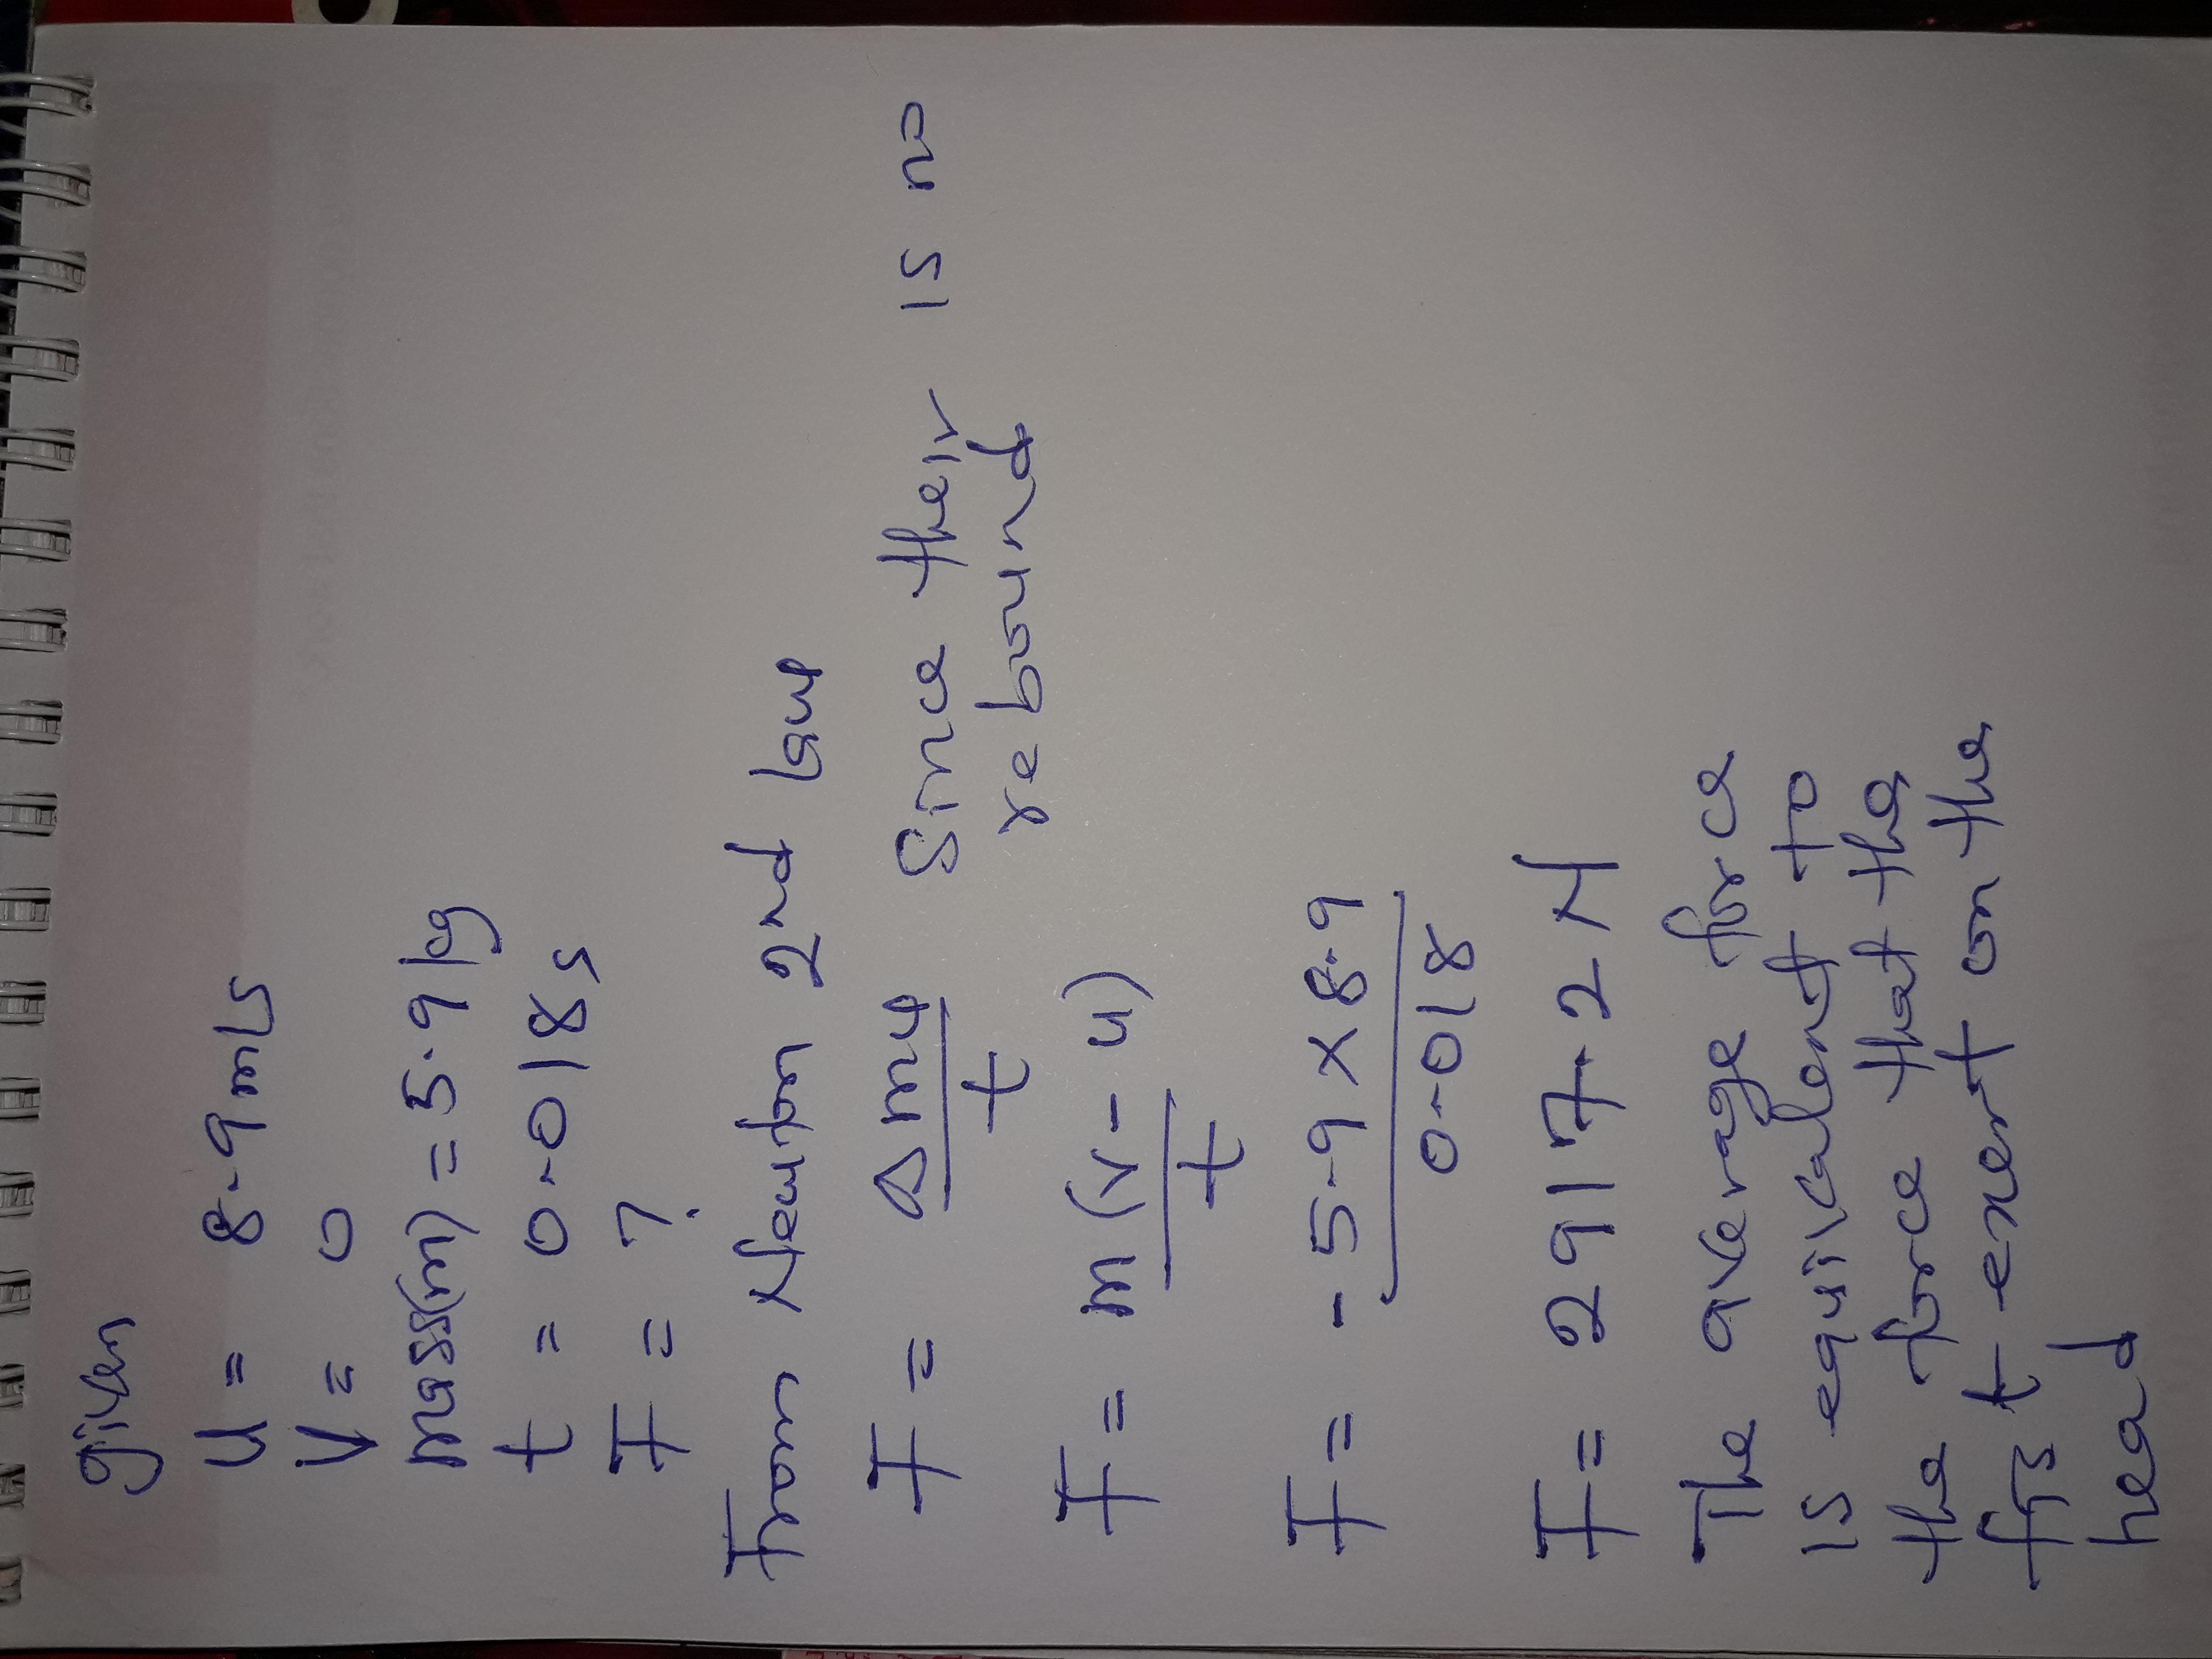 given
u = 8.9 m/s
v = 0
mass(m) = 5.9 kg
t = 0.018s
F = ?
From Newton 2nd law
F = Δmv / t Since their is no
rebound
F = m(v-u) / t
F = -5.9 x 8.9 / 0.018
F = 2917.2N
The average force
is equivalent to
the force that the
fist exert on the
head